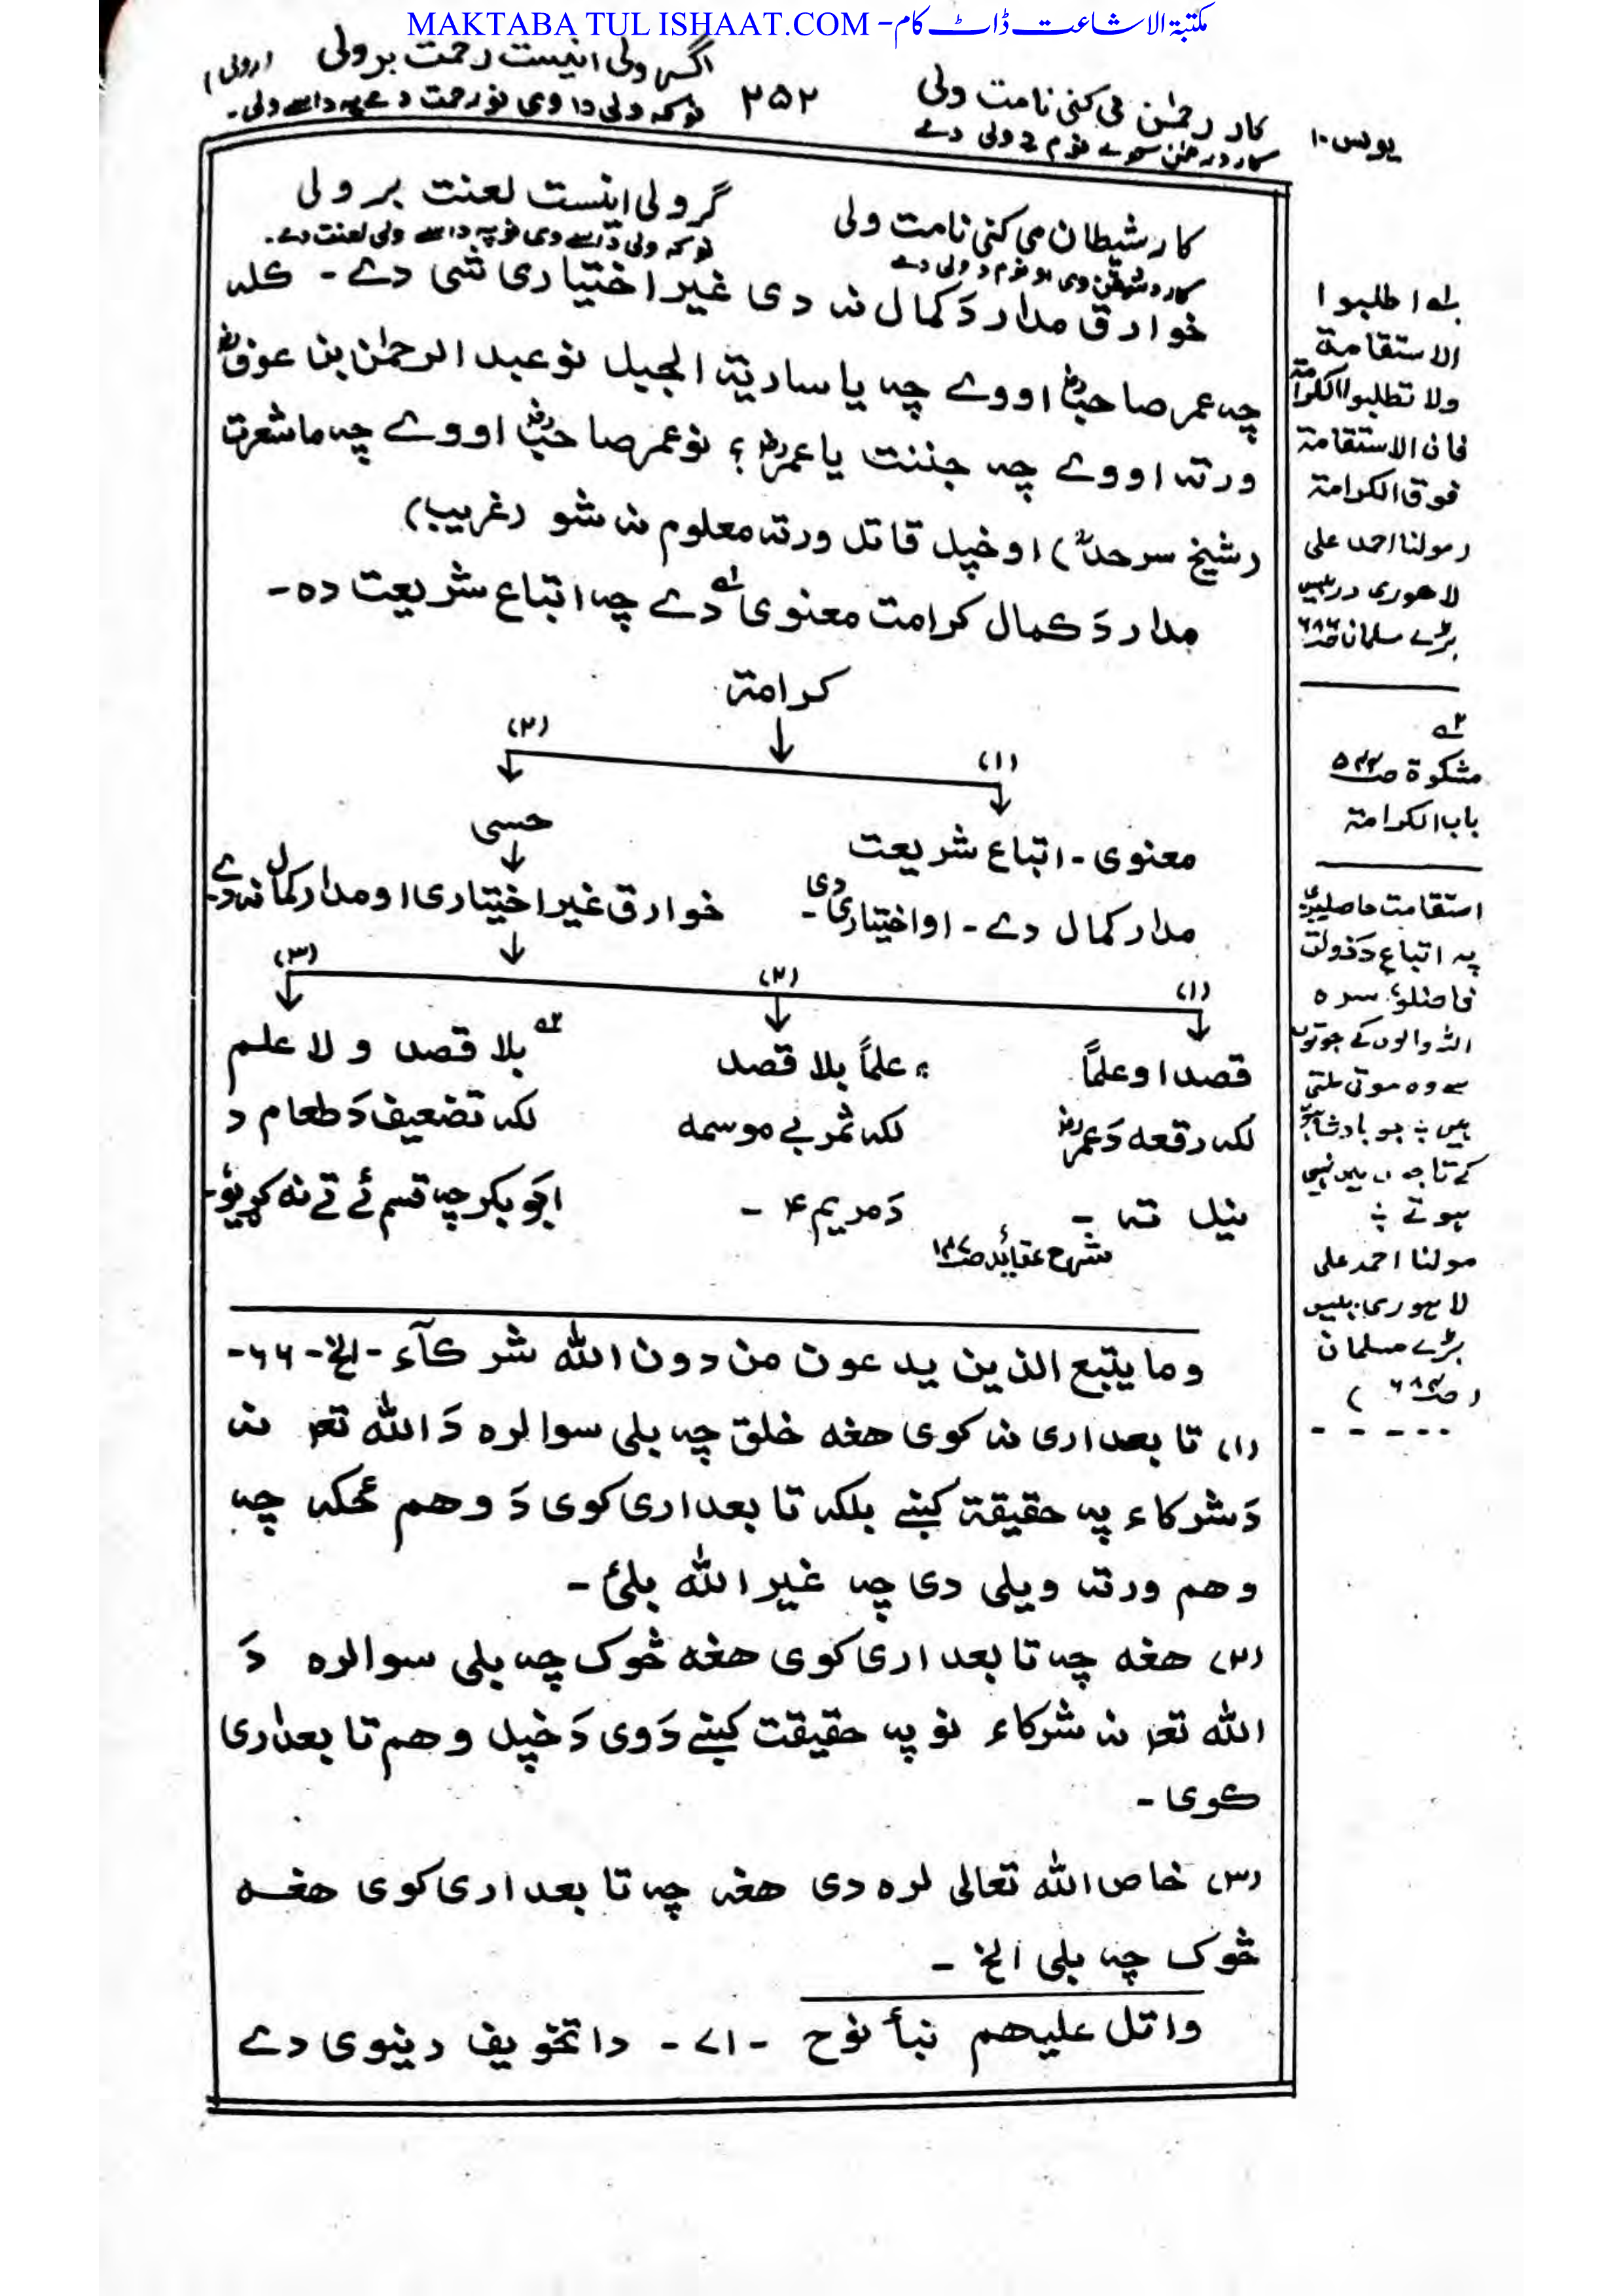 MAKTABA TUL ISHAAT.COM - مکتبۃ الاشاعت ڈاٹ کام
یونس ۱۰
کار رحمٰن می کنی نامت ولی
۲۵۲
اگر ولی اینست رحمت بر ولی (رولی)
کار د رحمٰن کوے نوم دِ ولی دے
نو کہ ولی دا وی نو رحمت دے پہ داسے ولی۔
کار شیطان می کنی نامت ولی
گر ولی اینست لعنت بر ولی
نو کہ ولی داسے وی نو پہ داسے ولی لعنت دے۔
خوارق مدار دَ کمال نہ دی غیر اختیاری شی دے۔ کلہ
چہ عمر صاحبؓ اووے چہ یا ساریۃ الجبل نو عبد الرحمٰن بن عوفؓ
ورتہ اووے چہ جننت یا عمرؓ؟ نو عمر صاحبؓ اووے چہ ما شعرت
(شیخ سرحدؒ) او خپل قاتل ورتہ معلوم نہ شو (غریب)
مدار دَ کمال کرامت معنوی لہ دے چہ اتباع شریعت دہ۔
کرامۃ
(۱)
(۲)
معنوی۔ اتباع شریعت
حسی
مدار کمال دے۔ او اختیاری دی۔
خوارق غیر اختیاری او مدار کمال نہ دے۔
(۱)
(۲)
(۳)
قصدا و علماً
علماً بلا قصد
بلا قصد و لا علم
لکہ رقعہ دَ عمرؓ
لکہ ثمر بے موسمہ
لکہ تضعیف دَ طعام د
نیل تہ۔
دَ مریم ۴۔
ابوبکر چہ قسم ئے تے نہ کړیو۔
شرح عقائد
وما یتبع الذین یدعون من دون اللہ شرکآء۔ الخ۔ ۶۶۔
(۱) تابعداری نہ کوی ھغہ خلق چہ بلی سوا لرہ دَ اللہ تعہ نہ
دَ شرکاء پہ حقیقۃ کښے بلکہ تابعداری کوی دَ وھم ځکہ چہ
وھم ورتہ ویلی دی چہ غیر اللہ بلئ۔
(۲) ھغہ چہ تابعداری کوی ھغہ څوک چہ بلی سوا لرہ دَ
اللہ تعہ نہ شرکاء نو پہ حقیقت کښے دَوی دَ خپل وھم تابعداری
کوی۔
(۳) خاص اللہ تعالی لرہ دی ھغہ چہ تابعداری کوی ھغہ
څوک چہ بلی الخ۔
واتل علیھم نبأ نوح ۔۷۱۔ دا تخویف دینوی دے
لہ اطلبوا
الاستقامۃ
ولا تطلبوا الکرامۃ
فان الاستقامۃ
فوق الکرامۃ
(مولنا احمد علی
لاھوری در بیس
بڑے مسلمان
۲ہ
مشکوۃ
باب الکرامۃ
استقامت حاصلیږی
پہ اتباع دَ
سرہ
اللہ والوں کے جوتوں
سے وہ موتی ملتی
ہیں جو بادشاہوں
کے تاجوں میں نہیں
ہوتے
مولنا احمد علی
لاہوری۔ بیس
بڑے مسلمان